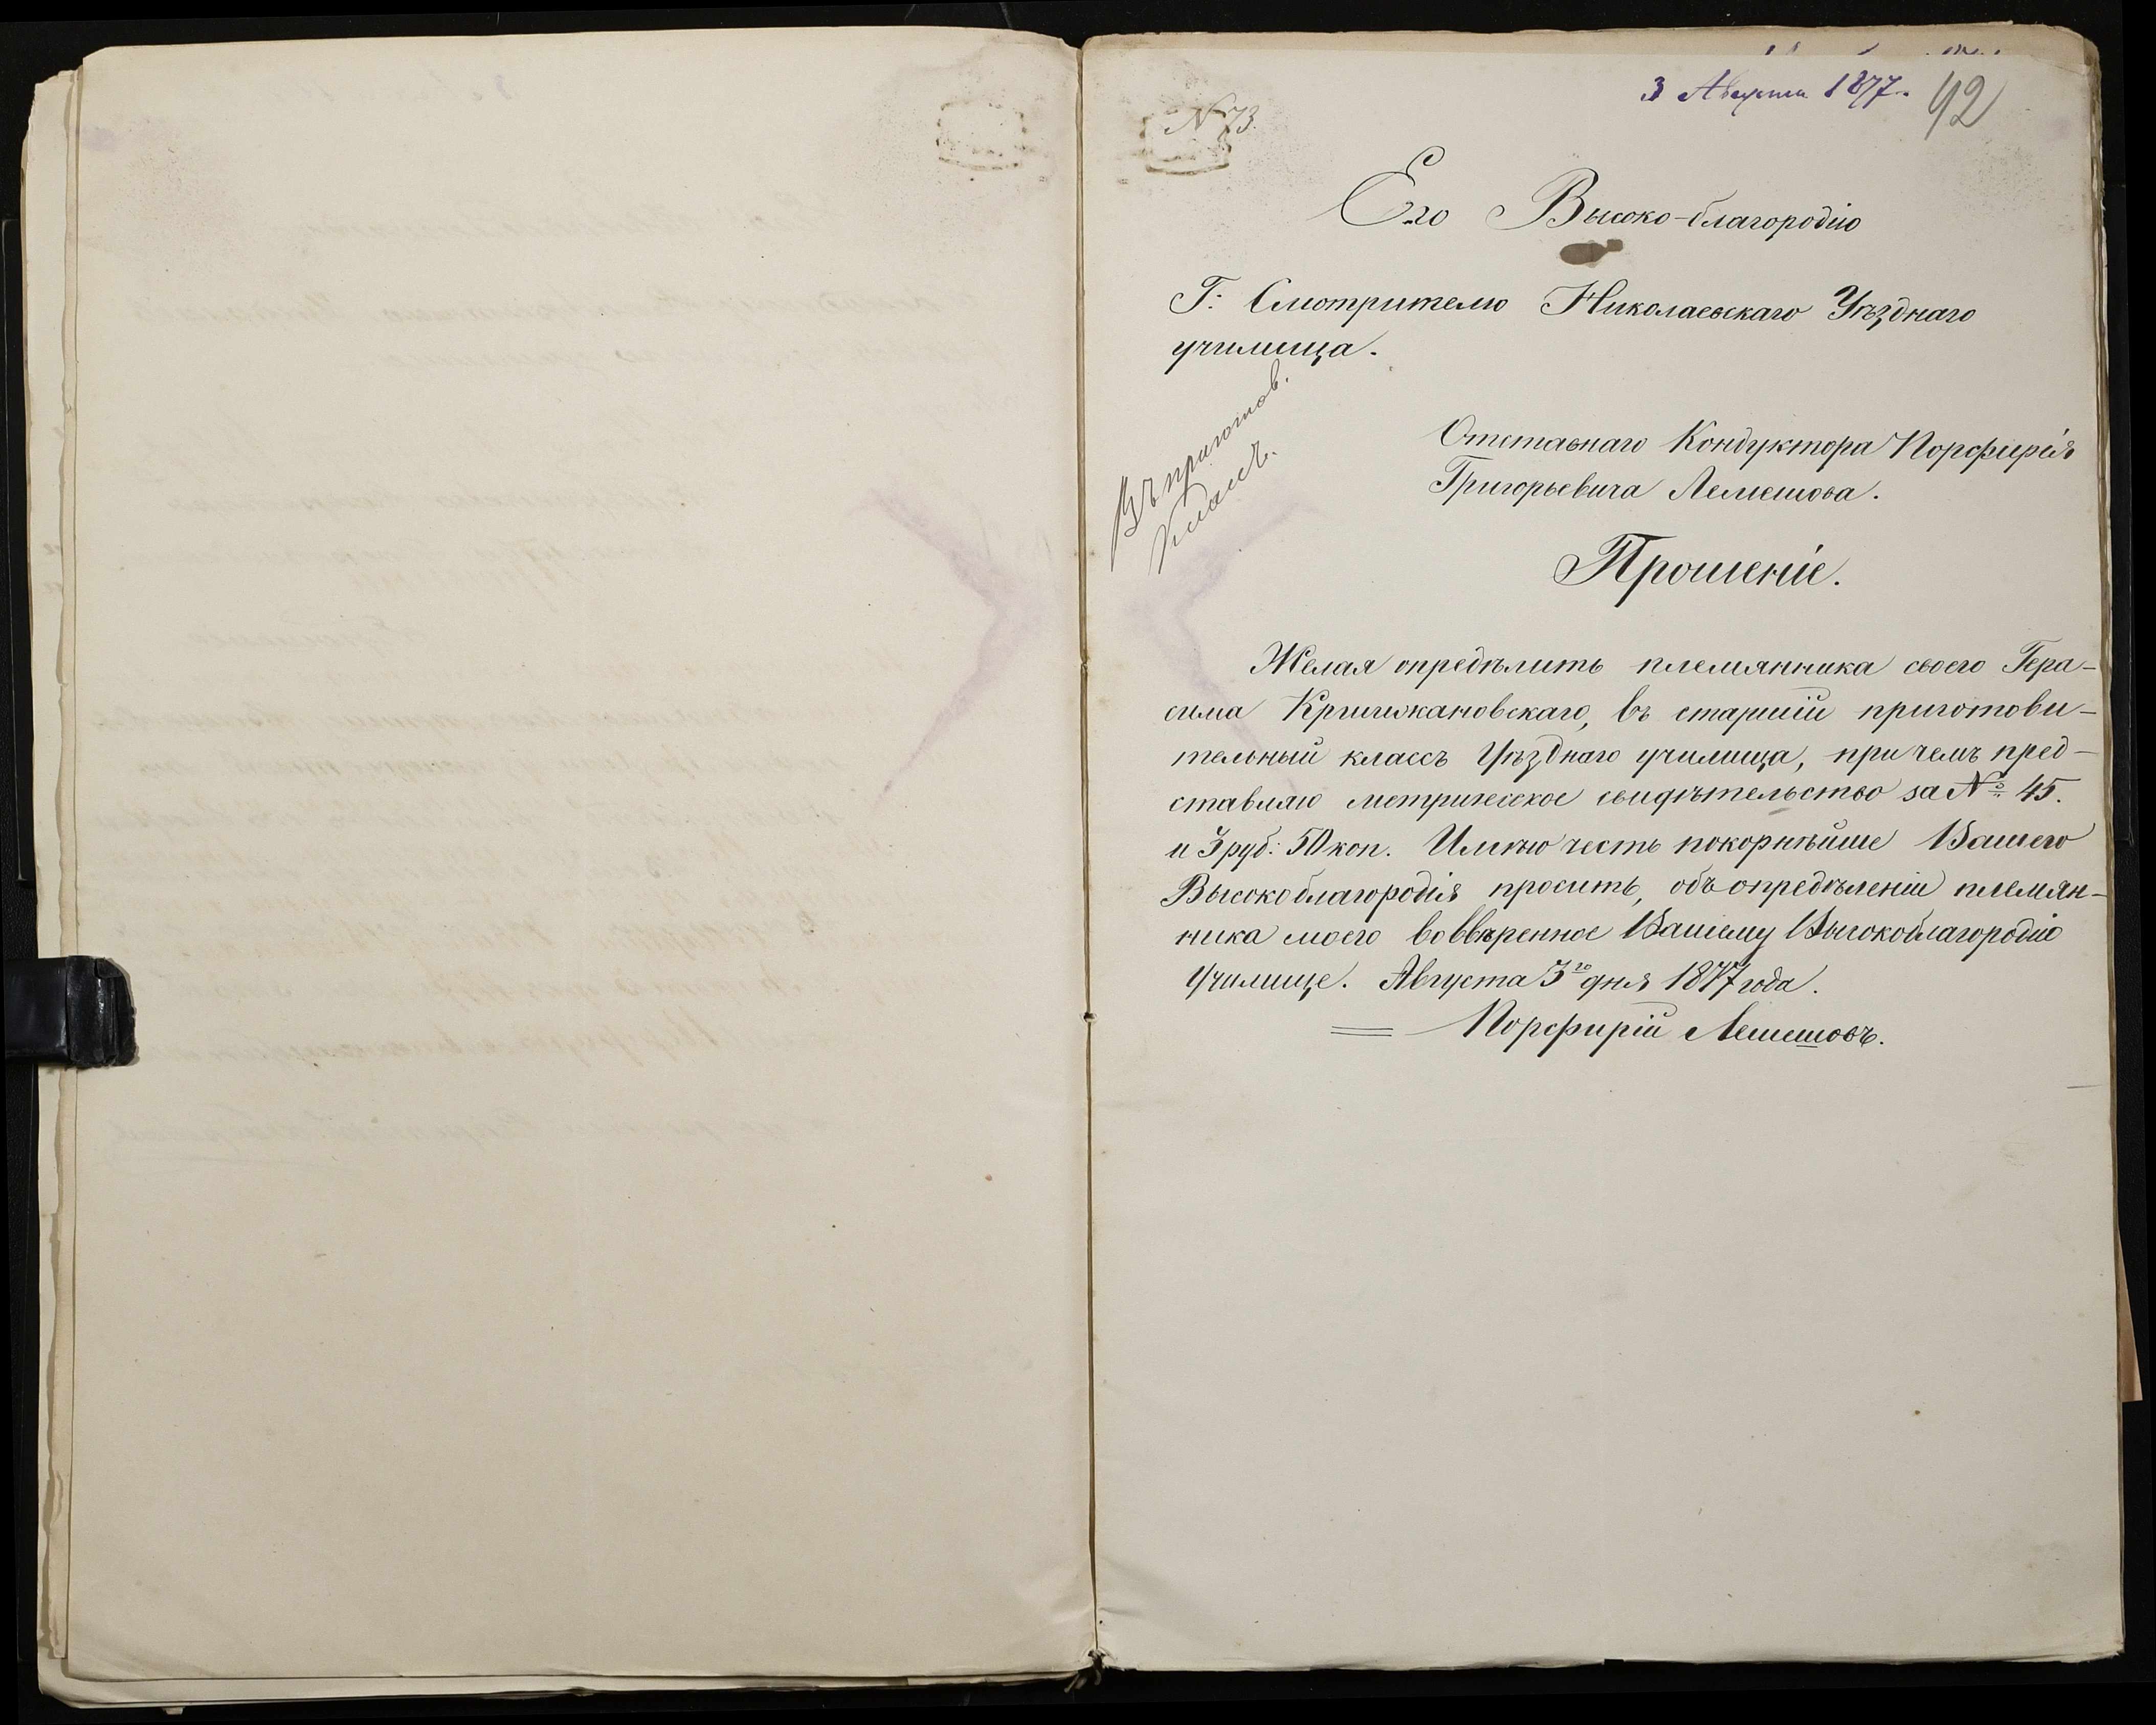 3 Августа 1877.
92
N 73.
Его Высоко-благородію
Г: Смотрителю Николаевскаго Уѣзднаго
училища.
Въ приготов.
классъ.
Отставнаго Кондуктора Порфирія
Григорьевича Лемешова.
Прошеніе.
Желая опредѣлить племянника своего Гера-
сима Кришжкановскаго, въ старшій приготови-
тельный классъ Уѣзднаго училища, при чемъ пред-
ставляю метрическое свидѣтельство за № 45.
и 3 руб: 50 коп. Имѣю честь покорнѣйше Вашего
Высокоблагородія просить, объ опредѣленіи племян-
ника моего во ввѣренное Вашему Высокоблагородію
Училище. Августа 3го дня 1877 года.
Порфирій Лемешовъ.